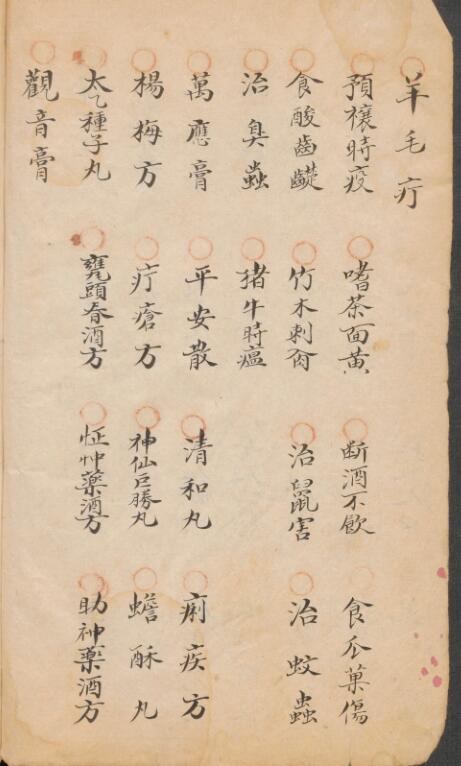 羊毛疔
預禳時疫　嗜茶面黃　斷酒不飲　食瓜菓傷
食酸齒齼　竹木刺肉　治鼠害　治蚊蟲
治臭蟲　猪牛時瘟
萬應膏　平安散　清和丸　痢疾方
楊梅方　疔瘡方　神仙巨勝丸　蟾酥丸
太乙種子丸　甕頭春酒方　怔忡藥酒方　助神藥酒方
觀音膏